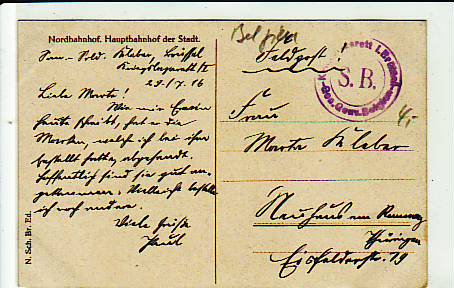 Nordbahnhof. Hauptbahnhof der Stadt.
San-Sold. Kleber, Brüssel
Kriegslazarett II
23. 7. 16
Liebe Martha!
Wie mir
heute schreibt, hat er die
welch ich bei ihm
bestellt hatte, abgesandt.
Hoffentlich sind sie gut an-
gekommen. Vielleicht bestelle
ich noch
Viele Grüße
Paul
N. Sch. Br. Ed.
Belgien
Feldpost!
S.B.
Frau
Martha Kleber
Neuhaus am Rennweg
Thüringen
Eisfelderstr. 19